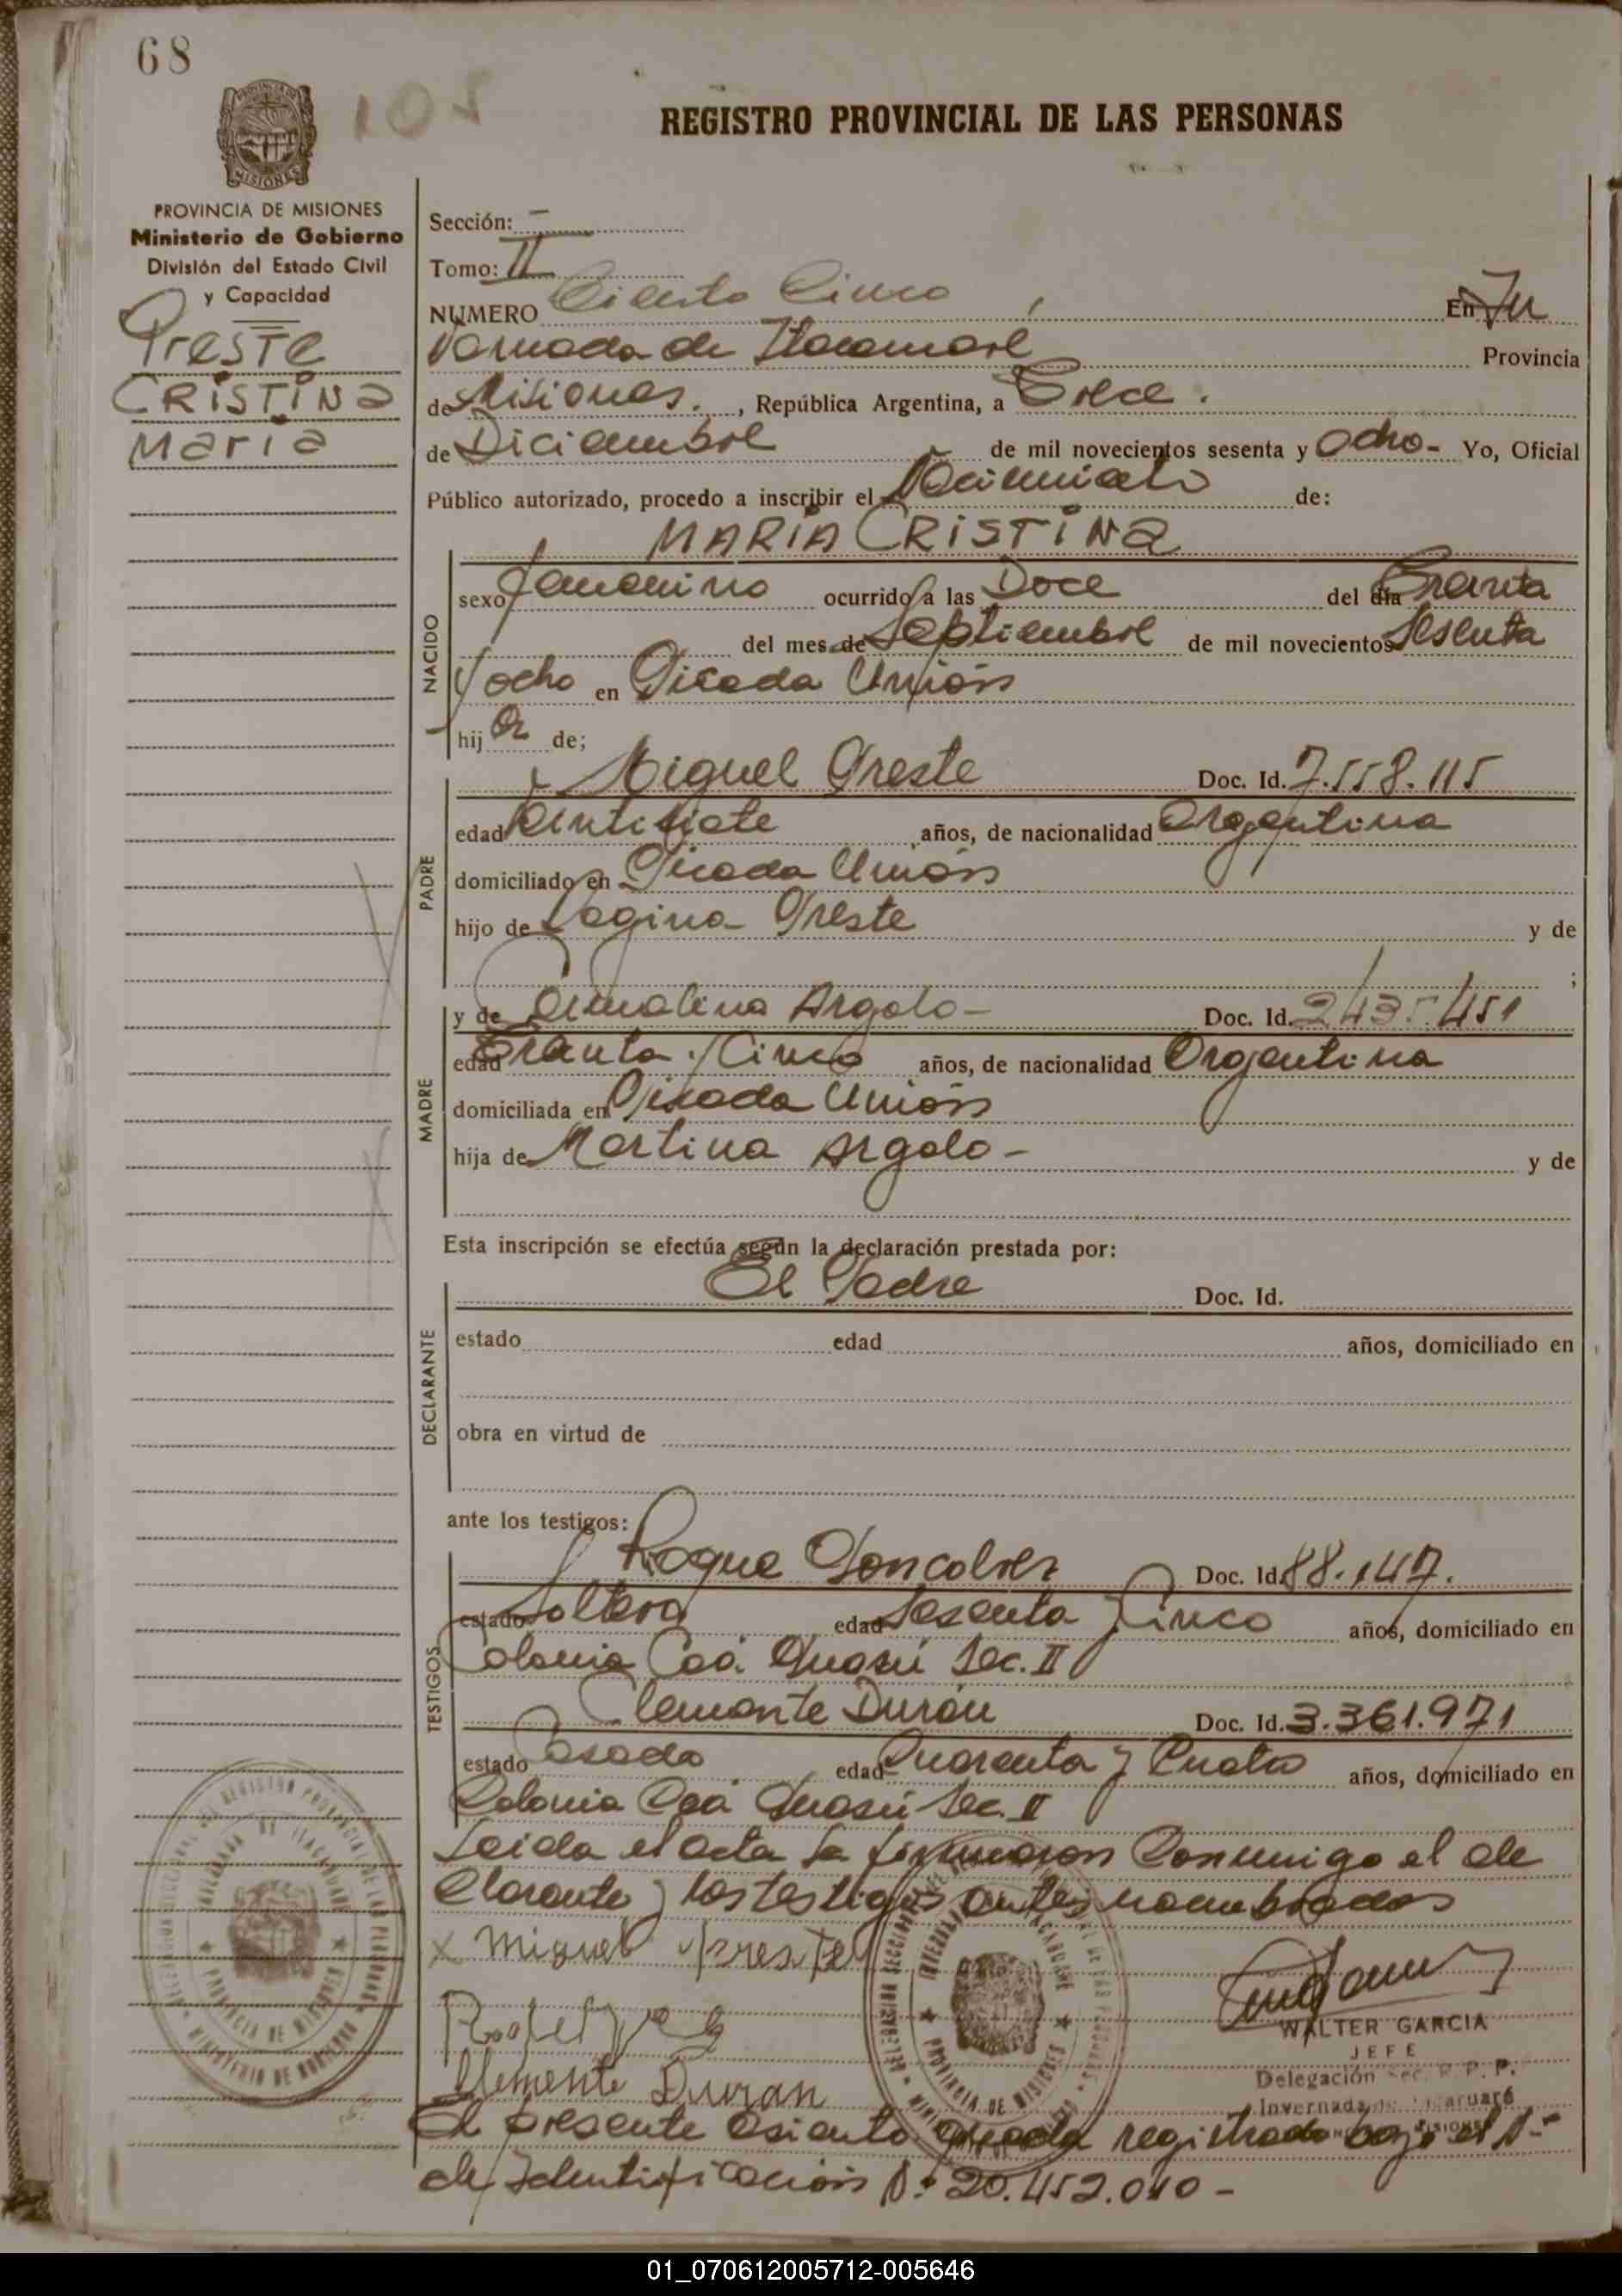 68
105
REGISTRO PROVINCIAL DE LAS PERSONAS
MISIONES
PROVINCIA DE MISIONES
Ministerio de Gobierno
División del Estado Civil
y Capacidad
Preste
CRISTINA
Maria
Sección: -
Tomo: II
NUMERO Ciento Cinco, En In
vernada de Itacaruaré Provincia
de Misiones., República Argentina, a Trece.
de Diciembre de mil novecientos sesenta y ocho- Yo, Oficial
Público autorizado, procedo a inscribir el Nacimiento de:
MARIA CRISTINA
NACIDO
sexo femenino ocurrido a las Doce del día Treinta
del mes de Septiembre de mil novecientos Sesenta
y ocho en Picada Unión
hij a de;
PADRE
Miguel Preste Doc. Id. 7.558.115
edad Ventisiete años, de nacionalidad Argentina
domiciliado en Picada Unión
hijo de Preste y de
;
MADRE
y de Argolo- Doc. Id. 2435.451
edad Treinta y Cinco años, de nacionalidad Argentina
domiciliada en Picada Unión
hija de Martina Argolo- y de
Esta inscripción se efectúa según la declaración prestada por:
El Padre Doc. Id.
DECLARANTE
estado edad años, domiciliado en
obra en virtud de
ante los testigos:
TESTIGOS
Roque Goncalves Doc. Id. 88.147.
estado Soltero edad Sesenta y Cinco años, domiciliado en
Colonia Caá Guasú Sec. II
Clemente Durán Doc. Id. 3.361.971
estado Casado edad Cuarenta y Cuatro años, domiciliado en
Colonia Caá Guasú Sec. II
Leida el acta la firmaron Conmigo el de
clarante y los testigos antes nombrados
x miguel preste
Clemente Duran
WALTER GARCIA
JEFE
Delegación Sec. R. P. P.
Invernada de Itacaruaré
MISIONES
El presente asiento queda registrado bajo el N°
de Identificación N° 20.452.040-
01_070612005712-005646